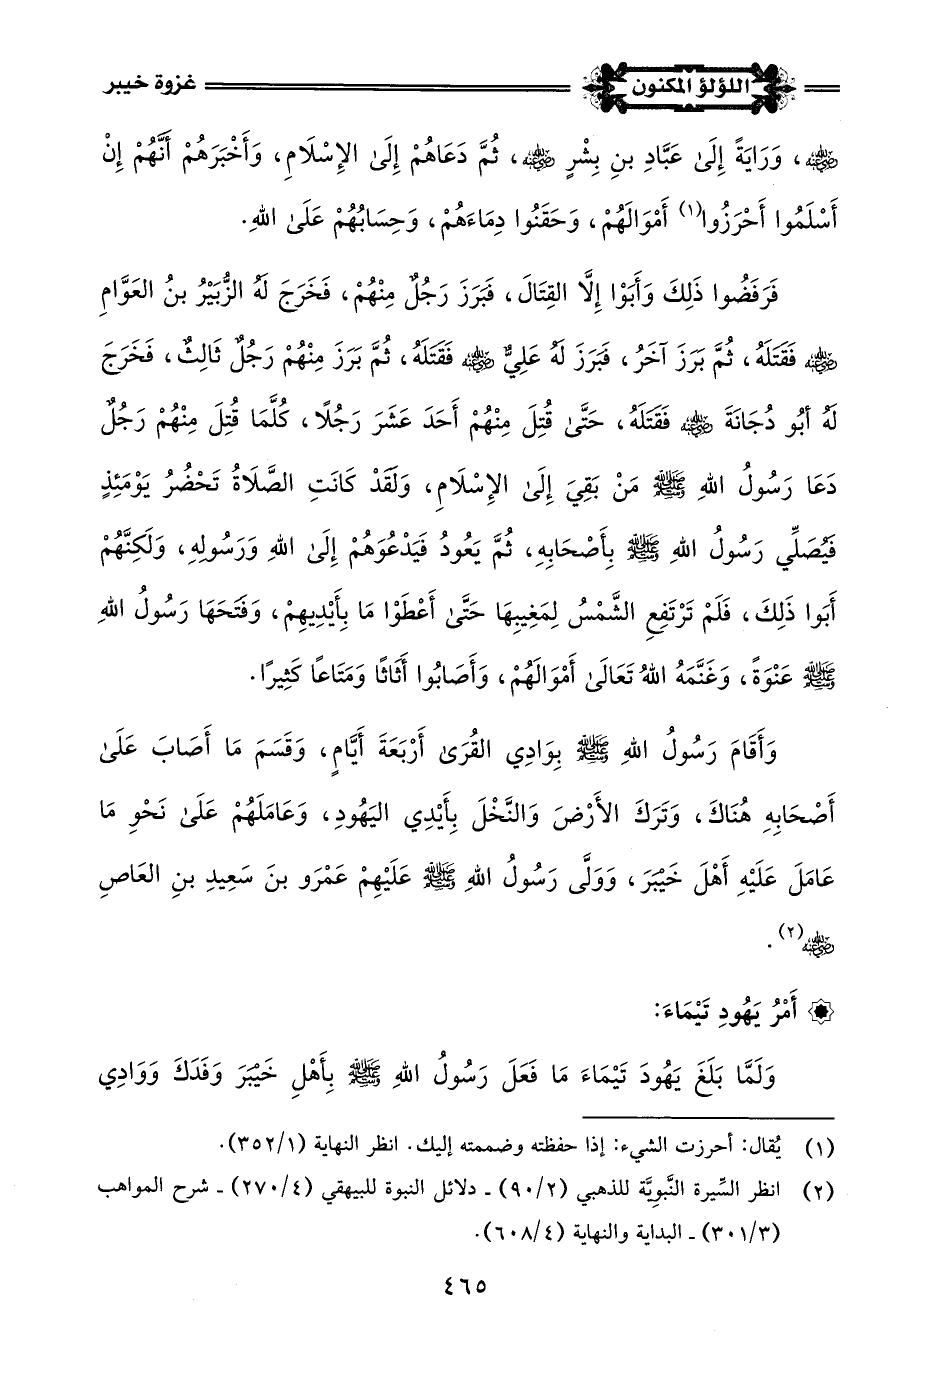 اللؤلؤ المكنون غزوة خيبر
رضي الله عنه، وَرَايَةً إِلَىٰ عَبَّادِ بنِ بِشْرٍ رضي الله عنه، ثُمَّ دَعَاهُمْ إِلَىٰ الإِسْلَامِ، وَأَخْبَرَهُمْ أَنَّهُمْ إِنْ
أَسْلَمُوا أَحْرَزُوا(١) أَمْوَالَهُمْ، وَحَقَنُوا دِمَاءَهُمْ، وَحِسَابُهُمْ عَلَىٰ اللهِ.
فَرَفَضُوا ذَلِكَ وَأَبَوْا إِلَّا القِتَالَ، فَبَرَزَ رَجُلٌ مِنْهُمْ، فَخَرَجَ لَهُ الزُّبَيْرُ بنُ العَوَّامِ
رضي الله عنه فَقَتَلَهُ، ثُمَّ بَرَزَ آخَرُ، فَبَرَزَ لَهُ عَلِيٌّ رضي الله عنه فَقَتَلَهُ، ثُمَّ بَرَزَ مِنْهُمْ رَجُلٌ ثَالِثٌ، فَخَرَجَ
لَهُ أَبُو دُجَانَةَ رضي الله عنه فَقَتَلَهُ، حَتَّىٰ قُتِلَ مِنْهُمْ أَحَدَ عَشَرَ رَجُلًا، كُلَّمَا قُتِلَ مِنْهُمْ رَجُلٌ
دَعَا رَسُولُ اللهِ ﷺ مَنْ بَقِيَ إِلَىٰ الإِسْلَامِ، وَلَقَدْ كَانَتِ الصَّلَاةُ تَحْضُرُ يَوْمَئِذٍ
فَيُصَلِّي رَسُولُ اللهِ ﷺ بِأَصْحَابِهِ، ثُمَّ يَعُودُ فَيَدْعُوَهُمْ إِلَىٰ اللهِ وَرَسُولِهِ، وَلَكِنَّهُمْ
أَبَوا ذَلِكَ، فَلَمْ تَرْتَفِعِ الشَّمْسُ لِمَغِيبِهَا حَتَّىٰ أَعْطَوْا مَا بِأَيْدِيهِمْ، وَفَتَحَهَا رَسُولُ اللهِ
ﷺ عَنْوَةً، وَغَنَّمَهُ اللهُ تَعَالَىٰ أَمْوَالَهُمْ، وَأَصَابُوا أَثَاثًا وَمَتَاعاً كَثِيرًا.
وَأَقَامَ رَسُولُ اللهِ ﷺ بِوَادِي القُرَىٰ أَرْبَعَةَ أَيَّامٍ، وَقَسَمَ مَا أَصَابَ عَلَىٰ
أَصْحَابِهِ هُنَاكَ، وَتَرَكَ الأَرْضَ وَالنَّخْلَ بِأَيْدِي اليَهُودِ، وَعَامَلَهُمْ عَلَىٰ نَحْوِ مَا
عَامَلَ عَلَيْهِ أَهْلَ خَيْبَرَ، وَوَلَّى رَسُولُ اللهِ ﷺ عَلَيْهِمْ عَمْرَو بنَ سَعِيدِ بنِ العَاصِ
رضي الله عنه(٢).
۞ أَمْرُ يَهُودِ تَيْمَاءَ:
وَلَمَّا بَلَغَ يَهُودَ تَيْمَاءَ مَا فَعَلَ رَسُولُ اللهِ ﷺ بِأَهْلِ خَيْبَرَ وَفَدَكَ وَوَادِي
(١) يُقال: أحرزت الشيء: إذا حفظته وضممته إليك. انظر النهاية (٣٥٢/١).
(٢) انظر السِّيرة النَّبوِيَّة للذهبي (٩٠/٢) ـ دلائل النبوة للبيهقي (٢٧٠/٤) ـ شرح المواهب
(٣٠١/٣) ـ البداية والنهاية (٦٠٨/٤).
٤٦٥